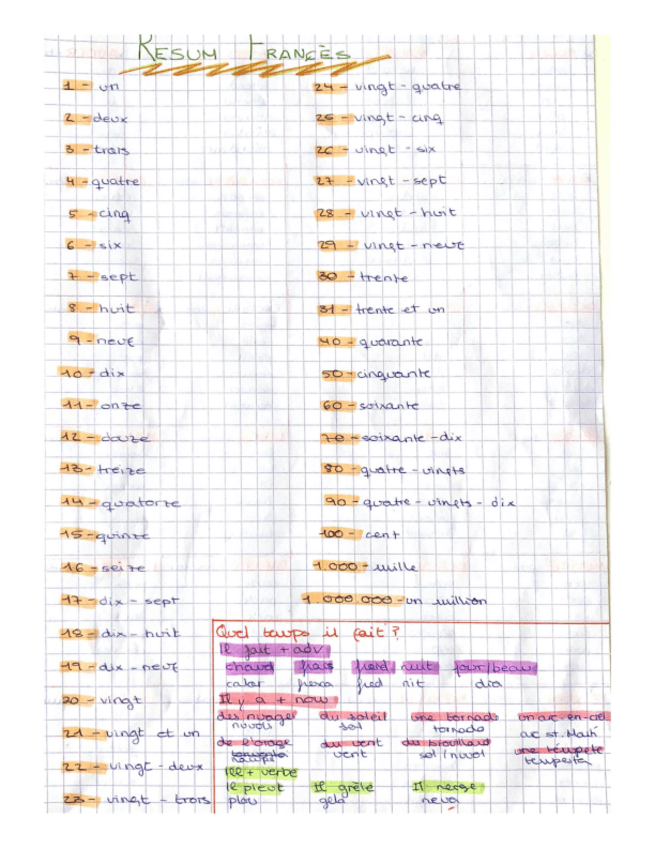 RESUM FRANCÈS
1 - un
2 - deux
3 - trois
4 - quatre
5 - cinq
6 - six
7 - sept
8 - huit
9 - neuf
10 - dix
11 - onze
12 - douze
13 - treize
14 - quatorze
15 - quinze
16 - seize
17 - dix - sept
18 - dix - huit
19 - dix - neuf
20 - vingt
21 - vingt et un
22 - vingt - deux
23 - vingt - trois
24 - vingt - quatre
25 - vingt - cinq
26 - vingt - six
27 - vingt - sept
28 - vingt - huit
29 - vingt - neuf
30 - trente
31 - trente et un
40 - quarante
50 - cinquante
60 - soixante
70 - soixante - dix
80 - quatre - vingts
90 - quatre - vingts - dix
100 - cent
1.000 - mille
1.000.000 - un million
Quel temps il fait?
Il fait + adv
chaud frais froid nuit jour/beau
calor fresca fred nit dia
Il y a + nom
des nuages du soleil une tornade un arc-en-ciel
núvols sol tornado arc st. Martí
de l'orage du vent du brouillard une tempête
vent sol/nuvol tempesta
Ill + verbe
il pleut Il grêle Il neige
plou gela neva